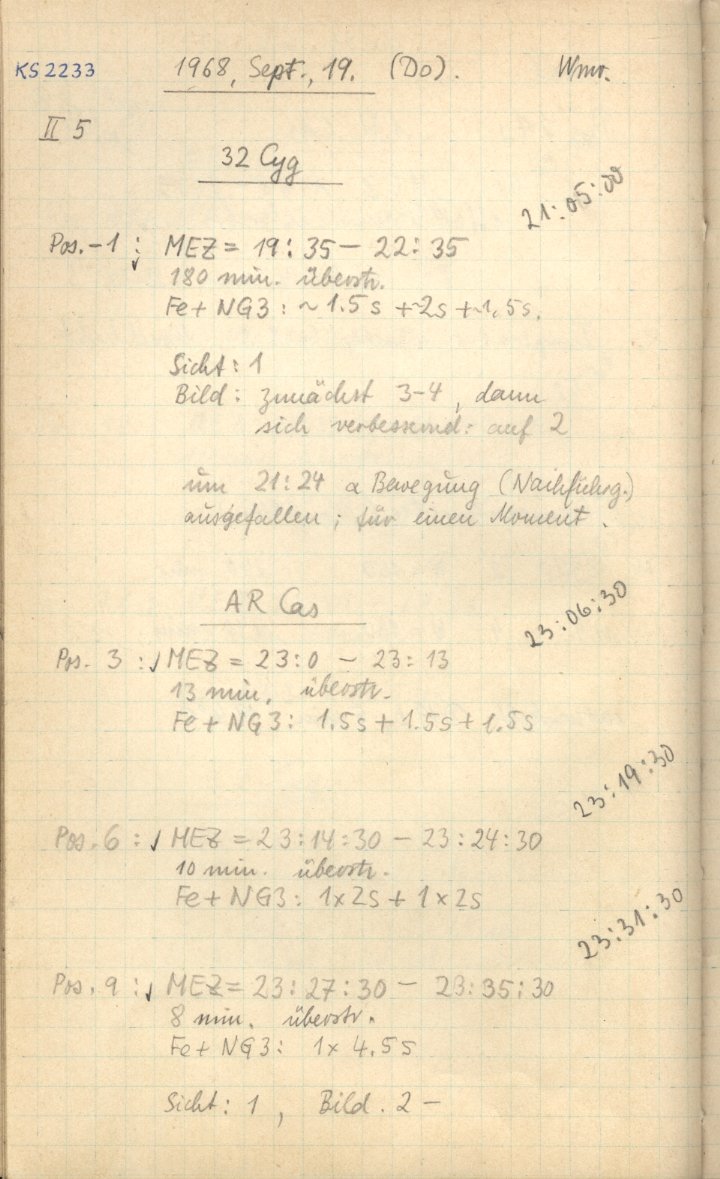 KS 2233 1968, Sept., 19. (Do). Wmr.
II 5
32 Cyg
21:05:00
Pos. -1 : MEZ = 19:35 - 22:35
180 min. überstr.
Fe + NG3 : ~1.5s + ~2s + ~1.5s.
Sicht : 1
Bild : zunächst 3-4, dann
sich verbessernd: auf 2
um 21:24 α Bewegung (Nachführg.)
ausgefallen ; für einen Moment.
AR Cas
23:06:30
Pos. 3 : ✓ MEZ = 23:0 - 23:13
13 min. überstr.
Fe + NG3 : 1.5s + 1.5s + 1.5s
23:19:30
Pos. 6 : ✓ MEZ = 23:14:30 - 23:24:30
10 min. überstr.
Fe + NG3 : 1x2s + 1x2s
23:31:30
Pos. 9 : ✓ MEZ = 23:27:30 - 23:35:30
8 min. überstr.
Fe + NG3 : 1x 4.5s
Sicht : 1 , Bild . 2 -